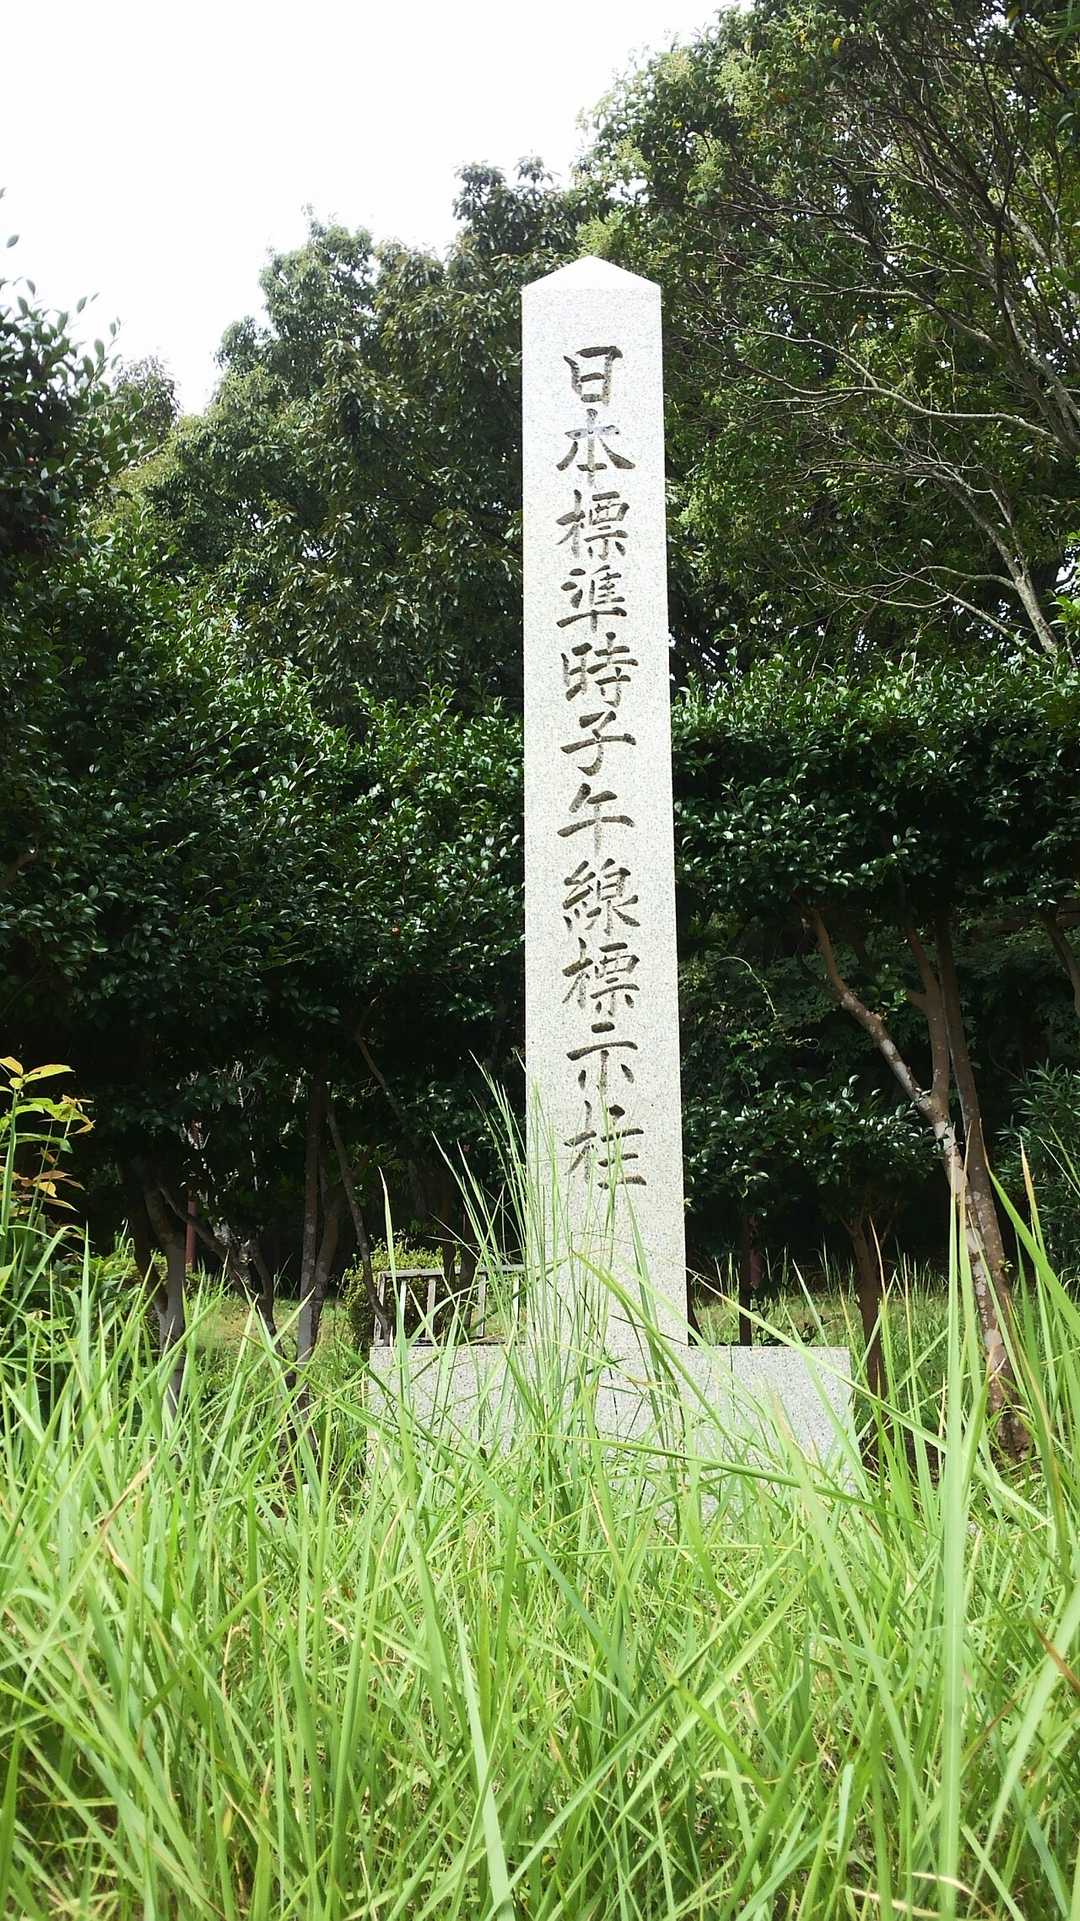 日本標準時子午線標示柱